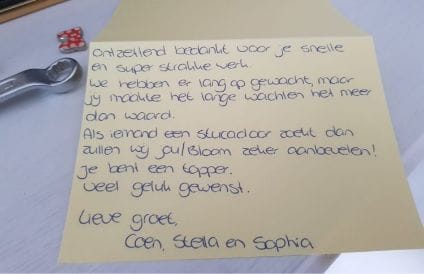 Ontzettend bedankt voor je snelle
en super strakke werk.
We hebben er lang op gewacht, maar
jij maakte het lange wachten het meer
dan waard.
Als iemand een stucadoor zoekt dan
zullen wij jou/Bloom zeker aanbevelen!
Je bent een topper.
Veel geluk gewenst.
Lieve groet,
Coen, Stella en Sophia